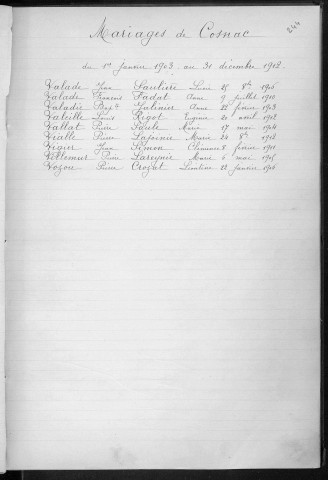 244
Mariages de Cosnac
du 1er janvier 1903 au 31 décembre 1912
Valade Jean Saulière 25 8bre
Valade François Fadat Anne 9 juillet 1910
Valadie Bapte Anne 22 janvier 1903
Valeille Louis Rigot Eugénie 20 avril 1912
Vallat Pierre Saule Marie 17 mai 1904
Vialle Pierre Lajoinie Marie 24 8bre 1912
Vigier Jean Simon 8 février
Villemur Pierre Lareynie Marie 6 mai 1905
Vozou Pierre Crozat Léontine 22 janvier 1910